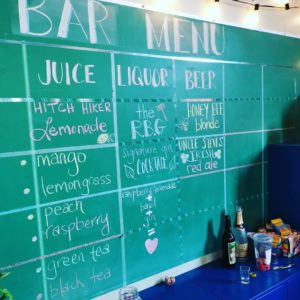 BAR MENU
JUICE
HITCH HIKER
Lemonade
mango
lemongrass
peach
raspberry
green tea
black tea
LIQUOR
the
RBG
signature gin
COCKTAIL
raspberry lemonade
+
basil
+
gin
=
BEER
HONEY BEE
blonde
UNCLE STEVE'S
IRISH
red ale